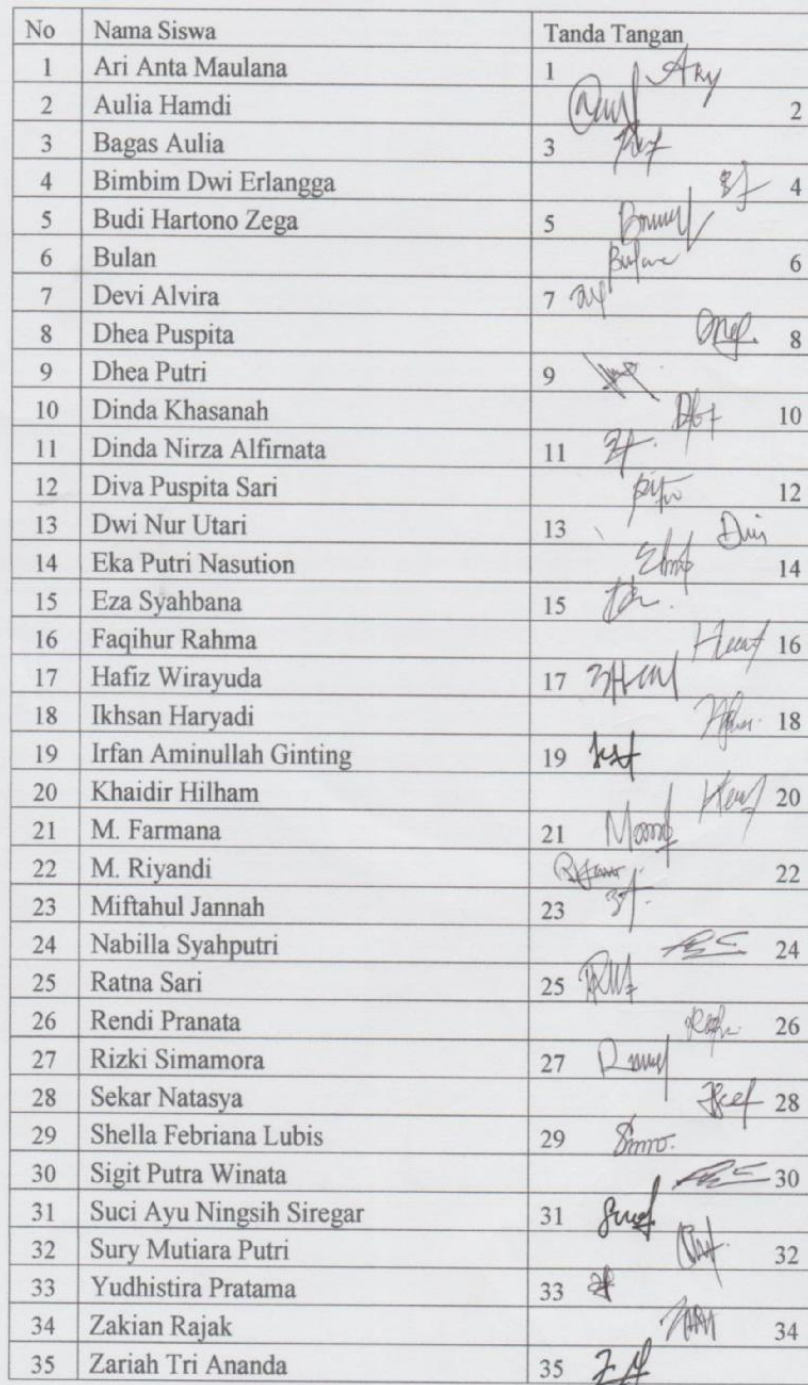 No Nama Siswa Tanda Tangan
1 Ari Anta Maulana 1 Ary
2 Aulia Hamdi 2
3 Bagas Aulia 3
4 Bimbim Dwi Erlangga 4
5 Budi Hartono Zega 5
6 Bulan 6
7 Devi Alvira 7
8 Dhea Puspita 8
9 Dhea Putri 9
10 Dinda Khasanah 10
11 Dinda Nirza Alfirnata 11
12 Diva Puspita Sari 12
13 Dwi Nur Utari 13 Dwi
14 Eka Putri Nasution 14
15 Eza Syahbana 15
16 Faqihur Rahma 16
17 Hafiz Wirayuda 17
18 Ikhsan Haryadi 18
19 Irfan Aminullah Ginting 19
20 Khaidir Hilham 20
21 M. Farmana 21
22 M. Riyandi 22
23 Miftahul Jannah 23
24 Nabilla Syahputri 24
25 Ratna Sari 25
26 Rendi Pranata 26
27 Rizki Simamora 27
28 Sekar Natasya 28
29 Shella Febriana Lubis 29
30 Sigit Putra Winata 30
31 Suci Ayu Ningsih Siregar 31
32 Sury Mutiara Putri 32
33 Yudhistira Pratama 33
34 Zakian Rajak 34
35 Zariah Tri Ananda 35